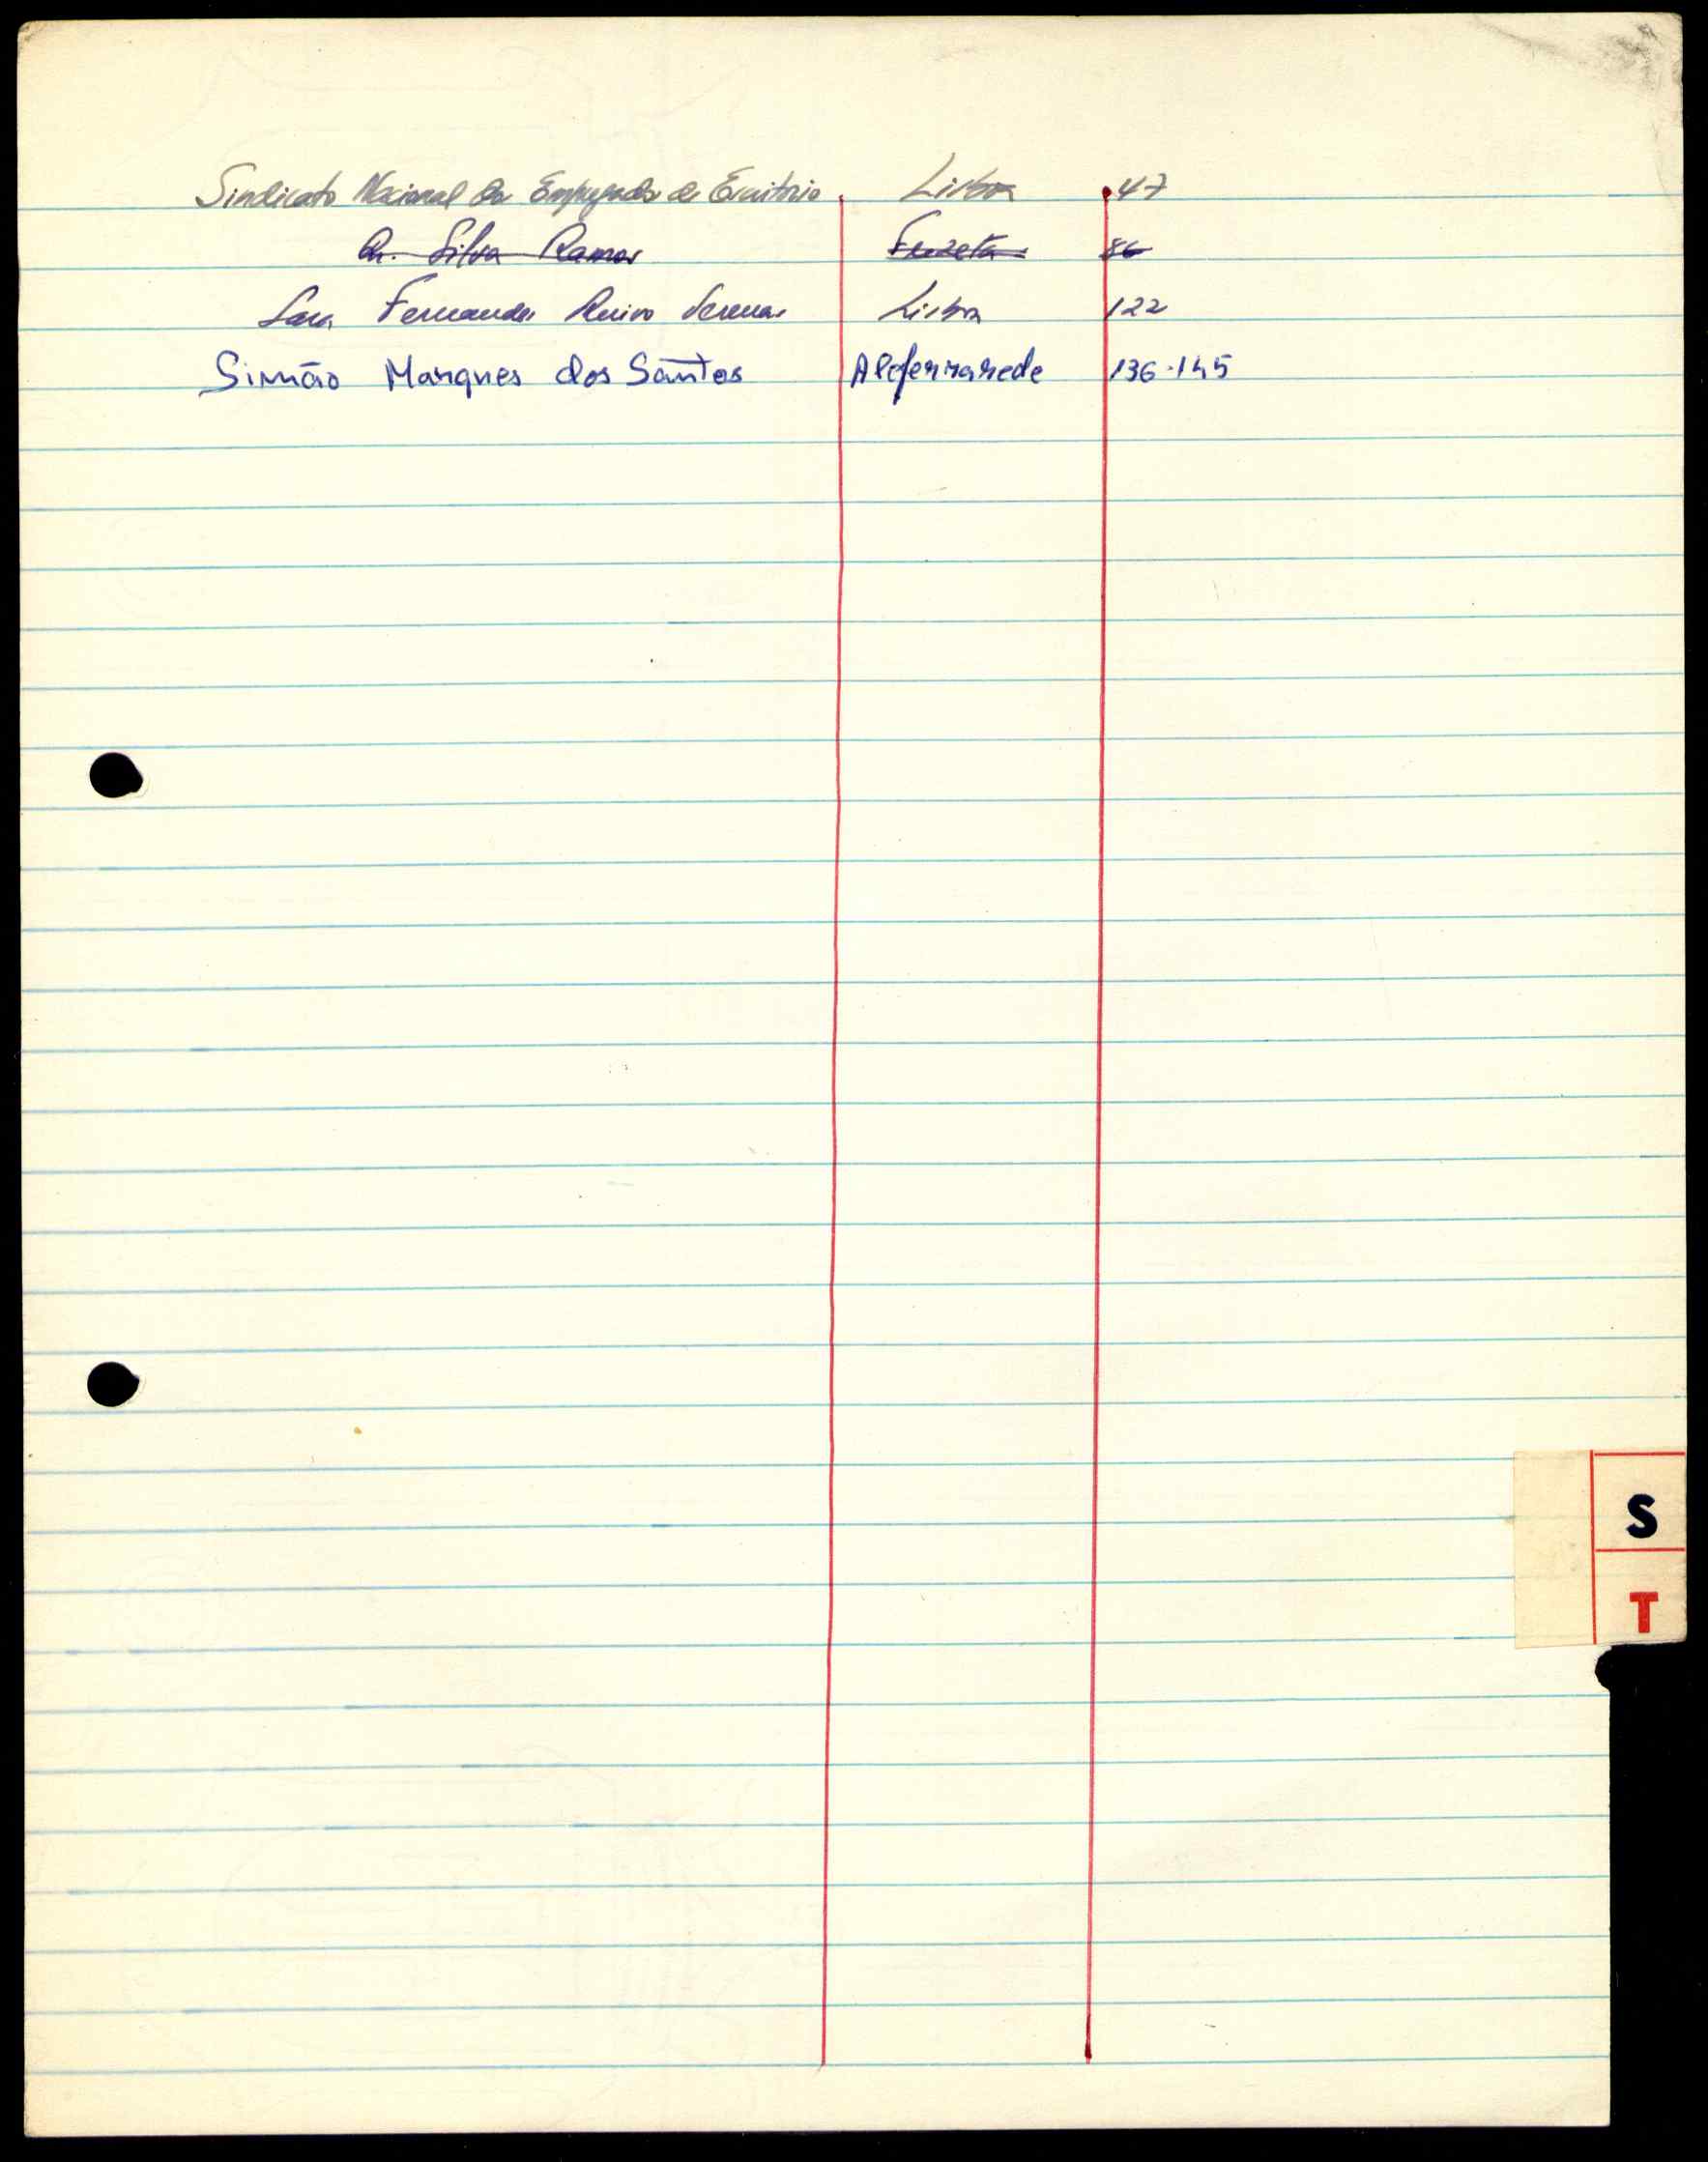 Sindicato Nacional dos Empregados de Escritório Lisboa 47
Dr. Silva Ramos Fuzeta 86
Sara Fernandes Ruivo Serenas Lisboa 122
Simão Marques dos Santos Alferrarede 136-145
S
T